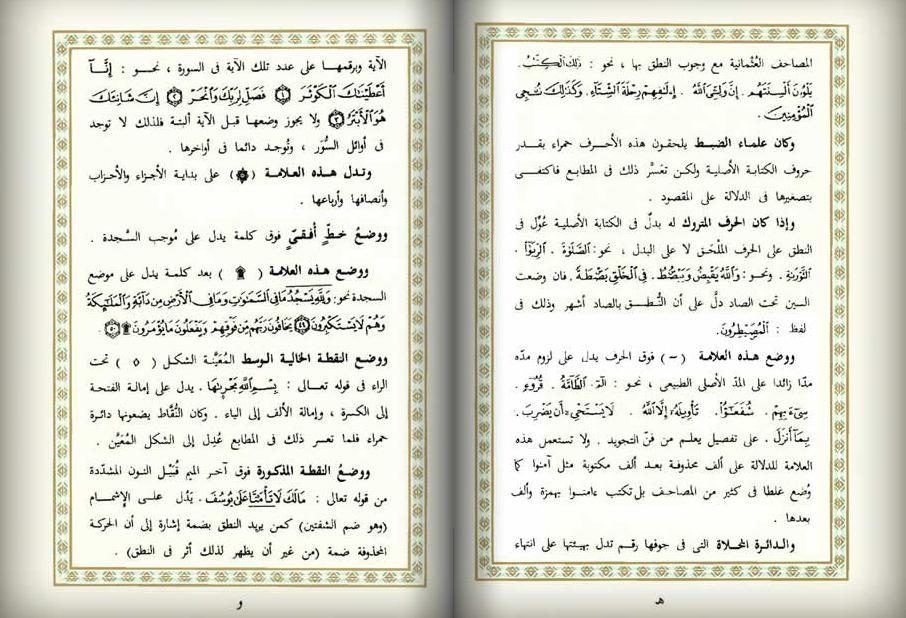 المصاحف العُثمانية مع وجوب النطق بها ، نحو : ذَٰلِكَ ٱلْكِتَٰبُ .
يَلْوُۥنَ أَلْسِنَتَهُم . إِنَّ وَلِـِّۧىَ ٱللَّهُ . إِۦلَٰفِهِمْ رِحْلَةَ ٱلشِّتَآءِ . وَكَذَٰلِكَ نُـۨجِى
ٱلْمُؤْمِنِينَ .
وكان علماء الضبط يلحقون هذه الأحرف حمراء بقدر
حروف الكتابة الأصلية ولكن تعسَّر ذلك فى المطابع فاكتفى
بتصغيرها فى الدلالة على المقصود .
وإذا كان الحرف المتروك له بدلٌ فى الكتابة الأصلية عُوِّل فى
النطق على الحرف المُلْحَق لا على البدل ، نحو: ٱلصَّلَوٰةَ . ٱلرِّبَوٰا۟ .
ٱلتَّوْرَىٰةَ . ونحو : وَٱللَّهُ يَقْبِضُ وَيَبْصُۜطُ . فِى ٱلْخَلْقِ بَصْۜطَةً . فان وضعت
السين تحت الصاد دلَّ على أن النُّطق بالصاد أشهر وذلك فى
لفظ : ٱلْمُصَۣيْطِرُونَ.
ووضع هذه العلامة ( ~ ) فوق الحرف يدل على لزوم مدّه
مدّا زائدا على المدّ الأصلى الطبيعى ، نحو : الٓمٓ . ٱلطَّآمَّةُ . قُرُوٓءٍ .
سِىٓءَ بِهِمْ . شُفَعَٰٓؤُا۟ . تَأْوِيلَهُۥٓ إِلَّا ٱللَّهُ . لَا يَسْتَحْىِۦٓ أَن يَضْرِبَ .
بِمَآ أُنزِلَ . على تفصيل يعلم من فنّ التجويد . ولا تستعمل هذه
العلامة للدلالة على ألف محذوفة بعد ألف مكتوبة مثل آمنوا كما
وُضع غلطا فى كثير من المصاحف بل تكتب ءامنوا بهمزة وألف
بعدها .
والدائرة المحلاة التى فى جوفها رقم تدل بهيئتها على انتهاء
ه
الآية وبرقمها على عدد تلك الآية فى السورة ، نحو : إِنَّآ
أَعْطَيْنَٰكَ ٱلْكَوْثَرَ ١ فَصَلِّ لِرَبِّكَ وَٱنْحَرْ ٢ إِنَّ شَانِئَكَ
هُوَ ٱلْأَبْتَرُ ٣ ولا يجوز وضعها قبل الآية ألبتة فلذلك لا توجد
فى أوائل السُّوَر ، وتُوجد دائما فى أواخرها .
وتدل هذه العلامة (۞) على بداية الأجزاء والأحزاب
وأنصافها وأرباعها .
ووضعُ خطٍّ أفقىٍّ فوق كلمة يدل على مُوجب السَّجدة .
ووضع هذه العلامة ( ۩ ) بعد كلمة يدل على موضع
السجدة نحو: وَلِلَّهِ يَسْجُدُ مَا فِى ٱلسَّمَٰوَٰتِ وَمَا فِى ٱلْأَرْضِ مِن دَآبَّةٍ وَٱلْمَلَٰٓئِكَةُ
وَهُمْ لَا يَسْتَكْبِرُونَ ٤٩ يَخَافُونَ رَبَّهُم مِّن فَوْقِهِمْ وَيَفْعَلُونَ مَا يُؤْمَرُونَ ۩ ٥٠
ووضع النقطة الخالية الوسط المُعَيَّنة الشكل ( ◊ ) تحت
الراء فى قوله تعالى : بِسْمِ ٱللَّهِ مَجْر۪ىٰهَا . يدل على إمالة الفتحة
إلى الكسرة ، وإمالة الألف إلى الياء . وكان النُّقَّاط يضعونها دائرة
حمراء فلما تعسر ذلك فى المطابع عُدِل إلى الشكل المُعَيَّن .
ووضعُ النقطة المذكورة فوق آخر الميم قُبَيْل النون المشدّدة
من قوله تعالى : مَالَكَ لَا تَأْمَ۫نَّا عَلَىٰ يُوسُفَ . يَدُل على الإشمام
(وهو ضم الشفتين) كمن يريد النطق بضمة إشارة إلى أن الحركة
المحذوفة ضمة (من غير أن يظهر لذلك أثر فى النطق) .
و